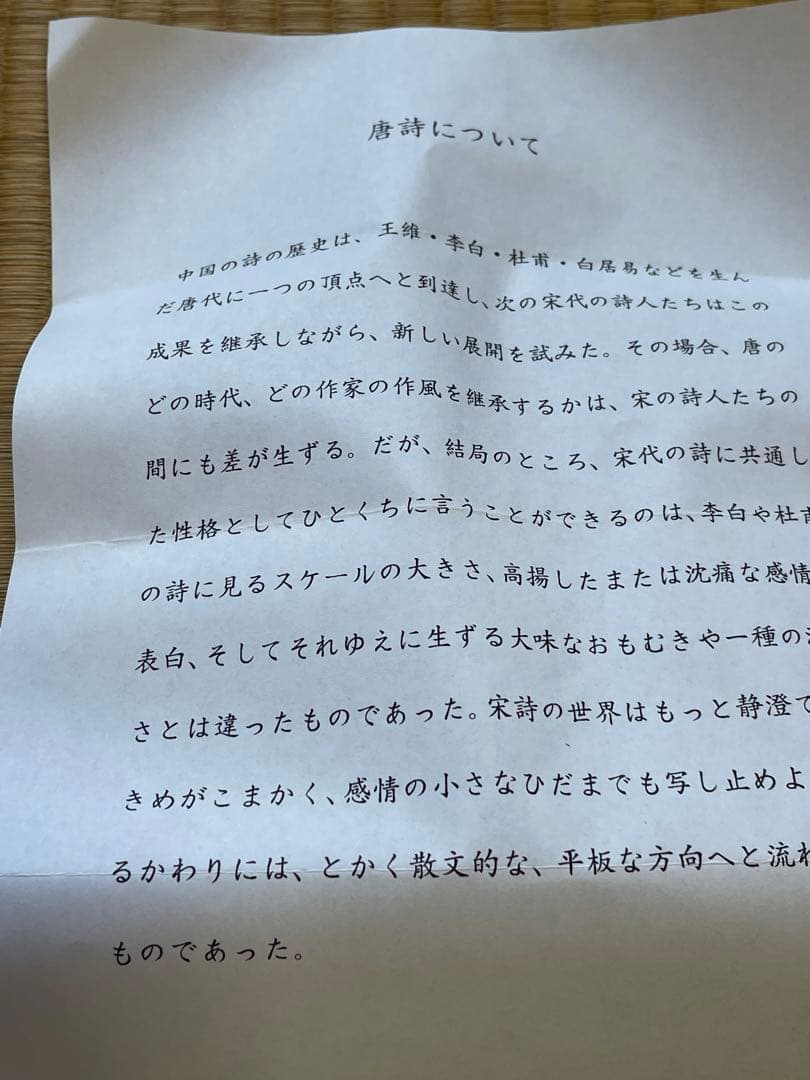 唐詩について
中国の詩の歴史は、王維・李白・杜甫・白居易などを生ん
だ唐代に一つの頂点へと到達し、次の宋代の詩人たちはこの
成果を継承しながら、新しい展開を試みた。その場合、唐の
どの時代、どの作家の作風を継承するかは、宋の詩人たちの
間にも差が生ずる。だが、結局のところ、宋代の詩に共通し
た性格としてひとくちに言うことができるのは、李白や杜甫
の詩に見るスケールの大きさ、高揚したまたは沈痛な感情
表白、そしてそれゆえに生ずる大味なおもむきや一種の
さとは違ったものであった。宋詩の世界はもっと静澄で
きめがこまかく、感情の小さなひだまでも写し止めよ
るかわりには、とかく散文的な、平板な方向へと流れ
ものであった。